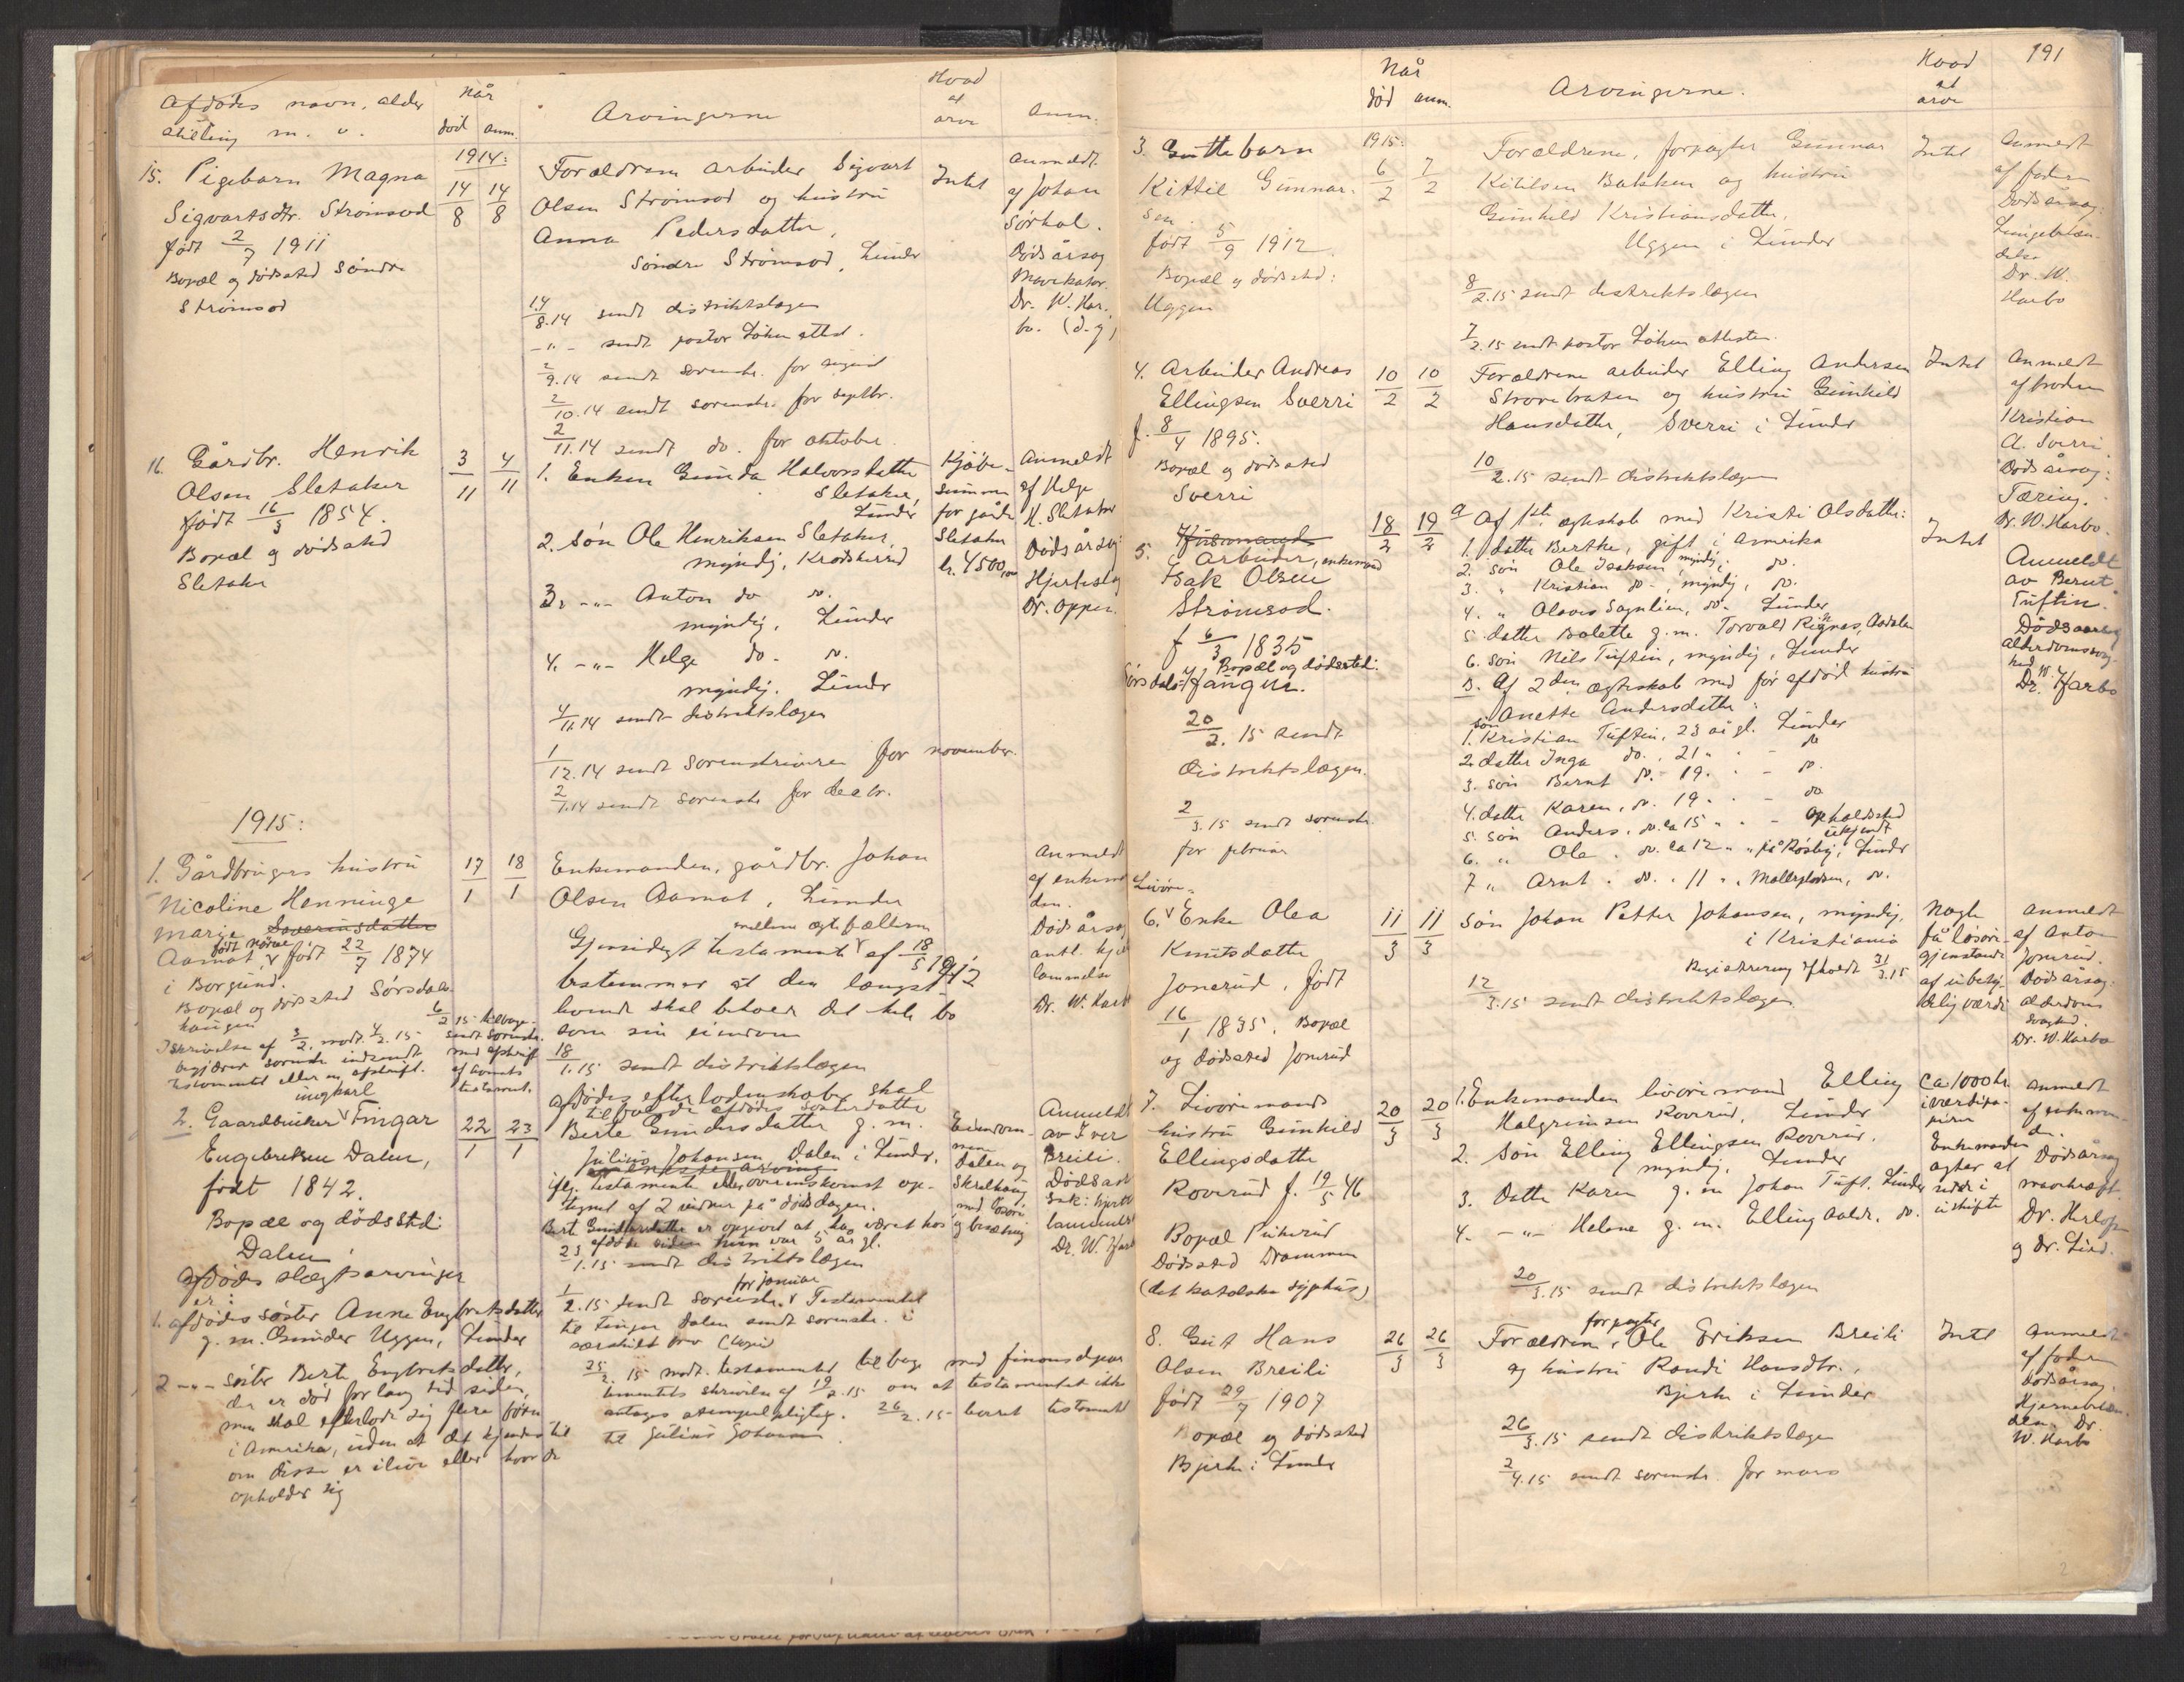 Afdødes navn, alder
stilling m. v.
Når
død anm.
Arvingerne
Hvad
at
arve
Anm.
1914:
15. Pigebarn Magna
Sigvartsdtr. Strömsod
født 2/7 1911
Bopæl og dødssted Söndre
Strömsod
14/8 14/8
Forældrene arbeider Sigvart
Olsen Strömsod og hustru
Anna Pedersdatter,
Söndre Strömsod, Lunder
14/8.14 sendt distriktslægen
-"- sendt pastor Löken attest.
2/9.14 sendt sorenskr. for august
2/10.14 sendt sorenskr. for septbr.
2/11.14 sendt do. for oktober
Intet
Anmeldt
af Johan
Sörhal.
Dödsårsag
Dr. W. Har-
bo. (d.y)
16. Gårdbr. Henrik
Olsen Sletaker
født 16/3 1854.
Bopæl og dødssted
Sletaker
3/11 4/11
1. Enken Gunda Halvorsdatter
Sletaker,
Lunder
2. Sön Ole Henriksen Sletaker,
myndig, Krödsherred
3. -"- Anton do do.
myndig, Lunder
4. -"- Helge do. do.
myndig. Lunder
4/11.14 sendt distriktslægen
1/12.14 sendt sorenskriveren for november.
2/1.14 sendt sorenskr. for decbr.
Kjöbe-
summen
for gården
Sletaker
kr. 4500,00
Anmeldt
af Helge
H. Sletaker
Dödsårsag:
Hjerteslag
Dr. Oppen.
1915:
1. Gårdbrugers hustru
Nicoline Henninge
Marie Severinsdatter
Aamot, født Nörve født 22/7 1874
i Borgund.
Bopæl og dødssted Sørsdals-
haugen
I skrivelse af 3/2. modt. 4/2. 15
begjærer sorenskr. indsendt
testamentet eller en afskrift.
6/2 15 tilbage-
sendt sorenskr.
med afskrift
af Aamots
testament.
17/1 18/1
Enkemanden, gårdbr. Johan
Olsen Aamot, Lunder
Gjensidigt testament mellem ægtefællerne af 18/5 1912
bestemmer at den længst-
levende skal beholde det hele bo
som sin eiendom
18/1.15 sendt distriktslægen
Anmeldt
af enkeman-
den.
Dödsårsag
lammelse
Dr. W. Harbo
2. Gaardbruker ungkarl Fingar
Engebretsen Dalen,
født 1842.
Bopæl og dødssted:
Dalen
Afdødes slægtsarvinger
er:
1. afdødes söster Anne Engebretsdatter
g. m. Gunder Uggen, Lunder
2 -"- söster Berte Engbretsdatter,
der er död for lang tid siden,
men skal efterlade sig flere börn
i Amerika, uden at det kjendes til
om disse er ilive eller hvor de
opholder sig
22/1 23/1
afdødes efterladenskaber skal
tilfalde afdødes sösterdatter
Berte Gundersdatter g. m.
Julius Johansen Dalen i Lunder,
som eneste arving
iflg. testamente eller overenskomst op-
tegnet af 2 vidner på dödsdagen.
Bert Gundersdatter er opgivet at ha været hos
afdøde siden hun var 5 år gl.
23/1.15 sendt distriktslægen
1/2.15 sendt sorenskr. for januar Testamentet
til Fingar Dalen sendt sorenskr. i
særskilt brev (kopi)
25/2. 15 modt. testamentet tilbage med finansdepar-
tementets skrivelse af 19/2.15 om at testamentet ikke
antages stempelpligtig. 26/2.15 levert testament
til Julius Johansen
Eiendom-
men
Dalen og
Skrelhaug
med lösöre
og besætning
Anmeldt
av Iver
Breili.
Dödsaar-
sak: hjerte
lammelse
Dr. W. Harbo
191
Når
død anm.
Arvingerne.
Hvad
at
arve
1915:
3. Guttebarn
Kittil Gunnar-
sen.
født 5/9 1912
Bopæl og dødssted:
Uggen
6/2 7/2
Forældrene, forpagter Gunnar
Kittilsen Bakken og hustru
Gunhild Kristiansdatter,
Uggen i Lunder
8/2.15 sendt distriktslægen
7/2.15 sendt pastor Löken attesten.
Intet
Anmeldt
af faderen
Dödsårsag:
Lungebetæn-
delse
Dr. W.
Harbo
4. Arbeider Andreas
Ellingsen Sverri
f. 8/4 1895.
Bopæl og dødssted
Sverri
10/2 10/2
Forældrene arbeider Elling Andersen
Strorebraten og hustru Gunhild
Hansdatter, Sverri i Lunder
10/2.15 sendt distriktslægen
Intet
Anmeldt
af broderen
Kristian
A. Sverri
Dödsårsag:
Tæring.
Dr. W. Harbo.
5. Husmands
Arbeider, enkemand
Isak Olsen
Strömsod.
f 6/3 1835
Bopæl og dødssted:
Sørsdals-Haugen.
20/2. 15 sendt
distriktslægen.
2/3.15 sendt sorenskr.
for februar
18/2 19/2
a Af 1ste ægteskab med Kristi Olsdatter:
1. datter Berthe, gift i Amerika
2. sön Ole Isaksen myndig, do.
3. " Kristian do. , myndig, do.
4. " Olaves Sagnlien, do. Lunder
5. datter Bolette g. m. Torvald Rignes, Aadalen
6. sön Nils Tuftin, myndig, Lunder
B. Af 2den ægteskab med før afdød hustru
Anette Andersdatter:
1. sön Kristian Tuftin, 23 år gl. Lunder
2. datter Inga do. , 21 " - do
3. sön Bernt do. - 19. " - do.
4. datter Karen, do. 19. " - do
5. sön Anders, do. ca 15 " " - opholdssted
ubekjendt
6. " Ole . do. ca 12 " " på Røsby, Lunder
7 " Arnt . do. . 11 " . Mollerpladsen, do.
Intet
Anmeldt
av Bernt
Tuftin.
Dödsaarsag
alderdomssvag-
hed
Dr. W. Harbo
6. Livöre- Enke Olea
Knutsdatter
Jonsrud, født
16/1 1835. Bopæl
og dødssted Jonsrud
11/3 11/3
Sön Johan Petter Johansen, myndig,
i Kristiania
Registrering afholdt 31/3.15
12/3.15 sendt distriktslægen
Nogle
få lösöre-
gjenstande
af ubety-
delig værdi
Anmeldt
af Anton
Jonsrud.
Dödsårsag:
alderdoms
svaghed.
Dr. W. Harbo
7. Livöremands
hustru Gunhild
Ellingsdatter
Roverud f. 19/5 46
Bopæl Pukerud
Dödssted Drammen
(det katolske sygehus)
20/3 20/3
1. Enkemanden livöremand Elling
Halgrimsen Roverud, Lunder
2. Sön Elling Ellingsen Roverud.
myndig, Lunder
3. Datter Karen g. m Johan Tuft. Lunder
4. -"- Helene g. m. Elling Aaldr. do.
20/3.15 sendt distriktslægen
Ca 1000 kr.
i værdipa-
pirer
Enkemanden
agter at
sidde i
uskifte
Anmeldt
af enkeman-
den.
Dödsårsag
Dr.
og Dr. Lind.
8. Gut Hans
Olsen Breili
født 29/7 1907
Bopæl og dødssted
Bjerke i Lunder
26/3 26/3
Forældrene, forpagter Ole Eriksen Breili
og hustru Randi Hansdtr.,
Bjerke i Lunder
26/3.15 sendt distriktslægen
2/4.15 sendt sorenskr. for mars
Intet
Anmeldt
af faderen
Dödsårsag
Hjernebetæn-
delse. Dr.
W. Harbo